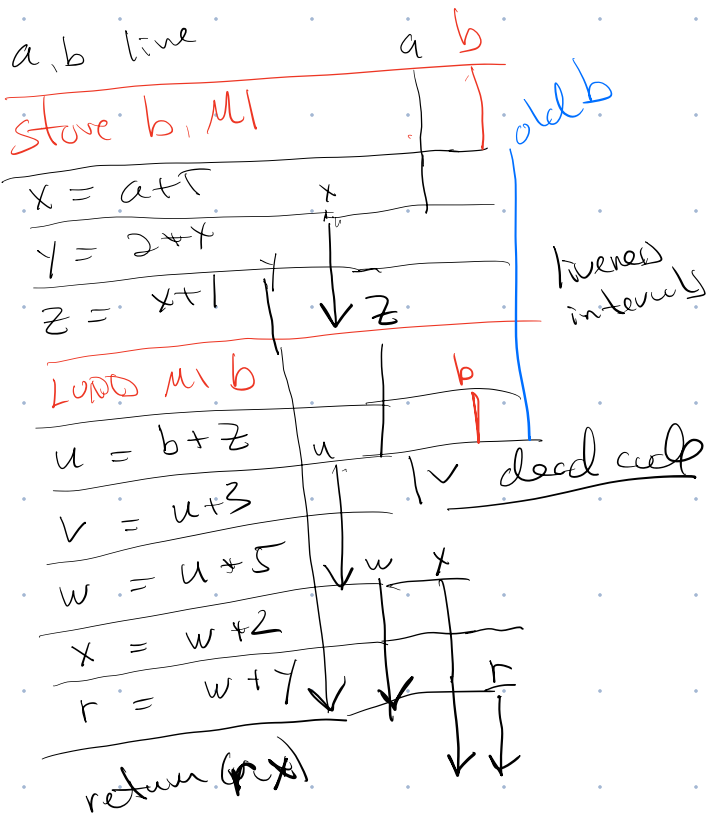 a, b live a b
store b, M1
old b
x = a+5 x
y = 2*x
y
z = x+1 z
liveness
intervals
LOAD M1 b b
u = b+z u
v dead code
v = u+3
w = u*5 w x
x = w+2
r = w+y r
return (r, x)